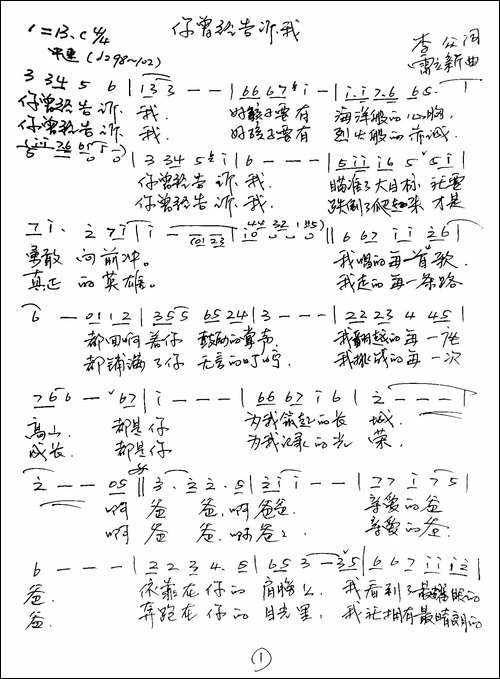 你曾经告诉我
1=B.C 4/4
中速（♩=98~102）
李众词
雷立新曲
3 34 5 6 | i 3 3 - - | 6 6 6 7 6 i - | i. i 7. 6 6 5. - |
你曾经告诉 我, 好孩子要有 海洋般的心胸,
你曾经告诉 我. 好孩子要有 烈火般的赤诚.
| 3 34 5 6 i | 6 - - - | 5 i i i 6 5 5 i |
你曾经告诉我. 瞄准了大目标, 就要
你曾经告诉我. 跌倒了爬起来 才是
7 i. 2 7 i | i - | 6 6 7 i i 2 6 |
勇敢 向前冲。 我唱的每一首歌.
真正 的英雄。 我走的每一条路
6 - 0 i i 2 | 3 5 5 6 5 2 4 | 3 - - - | 2 2 2 3 4 4 5 |
都回响着你 鼓励的掌声. 我翻越的每一座
都铺满了你 无言的叮咛. 我挑战的每一次
7 6 6 - 6 7 | i - - - | 6 6 6 7 i 6 | 2 - - - |
高山. 都是你 为我筑起的长 城.
成长. 都是你 为我记录的光 荣.
2 - - 0 5 || 3. 2 2. 5 | 2 i i - - | 7 7 i 7 5 |
啊 爸 爸,啊爸爸. 亲爱的爸
啊 爸 爸. 啊爸爸 亲爱的爸.
6 - - - | 2 2 3 4. 5 | 6 5 3 - 3 5 | 6 6 7 i i i 2 |
爸. 依靠在你的 肩膀上. 我看到了最耀眼的
爸. 奔跑在你的 目光里, 我就拥有最晴朗的
①